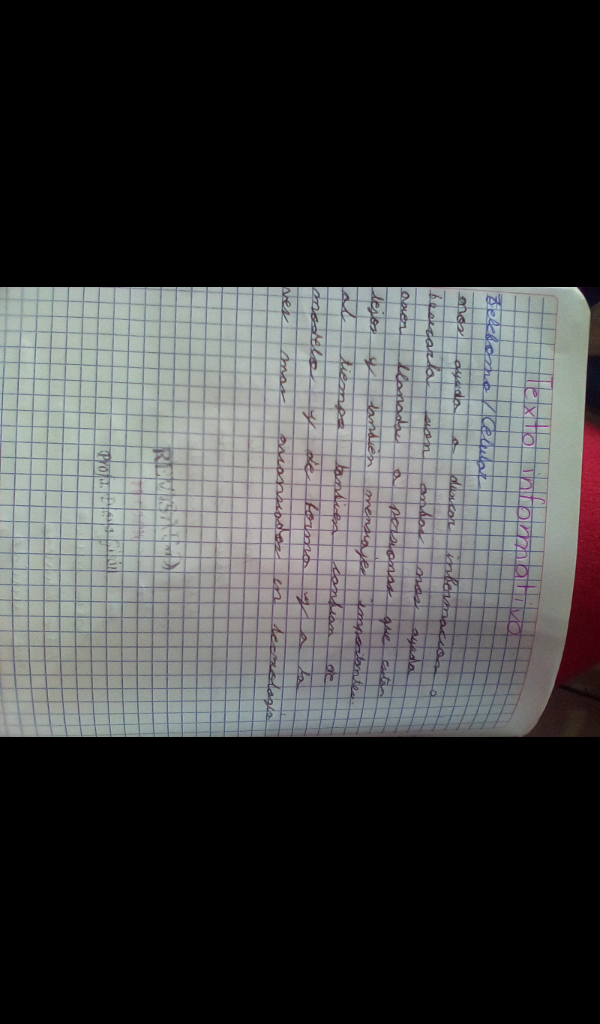 Texto informativo
Telefono / Celular
nos ayuda a buscar informacion o
buscarla con ambas nos ayuda
llamadas a personas que estan
lejos y tambien mensajes importantes
al tiempo tambien cambian de
modelo y de forma y a la
vez mas avanzados en tecnologia
REVISADO